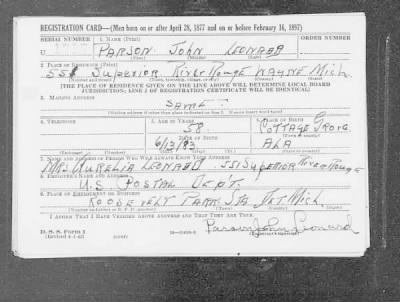 REGISTRATION CARD—(Men born on or after April 28, 1877 and on or before February 16, 1897)
SERIAL NUMBER 1. NAME (Print) ORDER NUMBER
U PARSON JOHN LEONARD
(First) (Middle) (Last)
2. PLACE OF RESIDENCE (Print)
551 SUPERIOR RIVER ROUGE WAYNE MICH.
(Number and street) (Town, township, village, or city) (County) (State)
[THE PLACE OF RESIDENCE GIVEN ON THE LINE ABOVE WILL DETERMINE LOCAL BOARD
JURISDICTION; LINE 2 OF REGISTRATION CERTIFICATE WILL BE IDENTICAL]
3. MAILING ADDRESS
SAME
[Mailing address if other than place indicated on line 2. If same insert word same]
4. TELEPHONE 5. AGE IN YEARS 6. PLACE OF BIRTH
58 COTTAGE GROVE
DATE OF BIRTH
6/13/83 ALA
(Exchange) (Number) (Mo.) (Day) (Yr.) (State or country)
7. NAME AND ADDRESS OF PERSON WHO WILL ALWAYS KNOW YOUR ADDRESS
MRS. AURELIA LEONARD 551 SUPERIOR RIVER ROUGE
8. EMPLOYER'S NAME AND ADDRESS
U.S. POSTAL DEPT.
9. PLACE OF EMPLOYMENT OR BUSINESS
ROOSEVELT PARK STA DET. MICH.
(Number and street or R. F. D. number) (Town) (County) (State)
I AFFIRM THAT I HAVE VERIFIED ABOVE ANSWERS AND THAT THEY ARE TRUE.
D. S. S. Form 1
(Revised 4-1-42) (over) Parson John Leonard
(Registrant's signature)